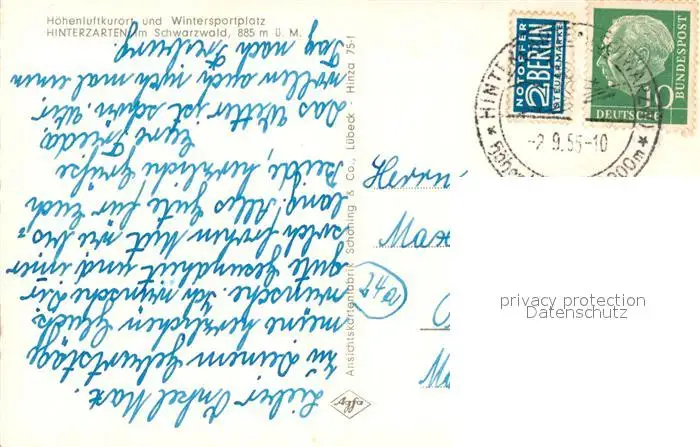 Höhenluftkurort und Wintersportplatz
HINTERZARTEN im Schwarzwald, 885 m ü. M.
NOTOPFER
2 BERLIN
STEUERMARKE
DEUTSCHE
BUNDESPOST
10
-2.9.55-10
Herrn
Max
24a
privacy protection
Datenschutz
Ansichtskartenfabrik Schöning & Co., Lübeck
Hinza 75-1
Lieber Onkel Max.
Zu Deinem Geburtstage
meine herzlichen Glück-
wünsche. Ich wünsche Dir
gute Gesundheit und immer
solch frohen Mut wie bis-
lang. Alles Gute für Euch
Beide, herzliche Grüße
Eure Frieda.
Das Wetter ist schön. Wir
wollen auch noch mal einen
Tag nach Freiburg.